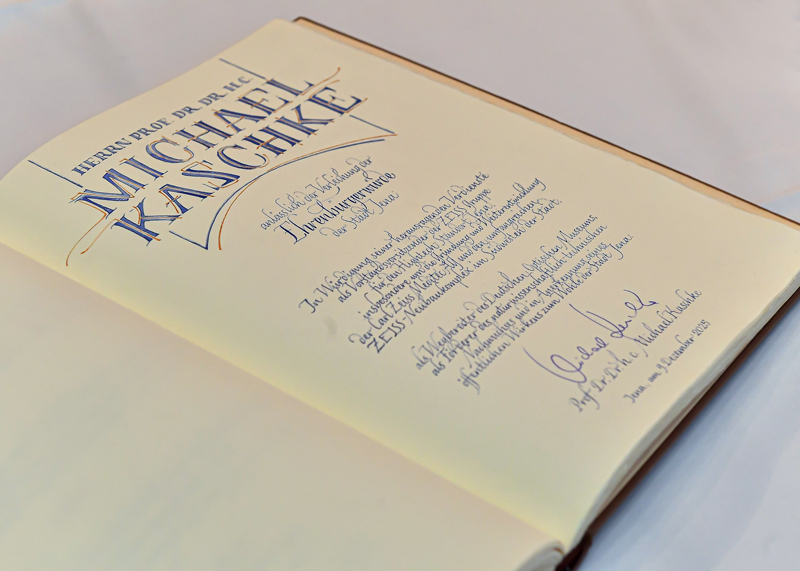 HERRN PROF. DR. DR. H.C.
MICHAEL
KASCHKE
anlässlich der Verleihung der
Ehrenbürgerwürde
der Stadt Jena
In Würdigung seiner herausragenden Verdienste
als Vorstandsvorsitzender der ZEISS Gruppe
für den Hightech Standort Jena,
insbesondere um die Gründung und Unterstützung
der Carl Zeiss Meditec AG und den umfangreichen
ZEISS-Neubaukomplex im Inselteil der Stadt.
als Wegbereiter des Deutschen Optischen Museums,
als Förderer des naturwissenschaftlich-technischen
Nachwuchses und in Anerkennung eines
öffentlichen Wirkens zum Wohle der Stadt Jena.
Prof. Dr. Dr. h. c. Michael Kaschke
Jena, am 9. Dezember 2025